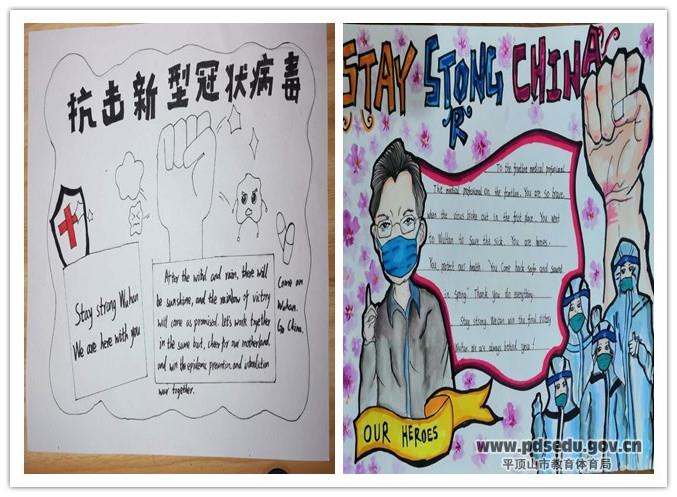 抗击新型冠状病毒
Stay strong Wuhan
We are here with you
After the wind and rain, there will
be sunshine, and the rainbow of victory
will come as promised. Let's work together
in the same boat, cheer for our motherland
and win the epidemic prevention and
war together.
Come on
Wuhan.
Go China.
STAY STONG CHINA
R
To the frontline medical professional
The medical professional on the frontline. You are so brave.
when the virus broke out in the first place. You went
to Wuhan to save the sick. You are heroes.
You protect our health. "You Come back safe and sound
in spring." Thank you do everything.
Stay strong. We can win the final victory
Wuhan. We are always behind you!
OUR HEROES
www.pdsedu.gov.cn
平顶山市教育体育局